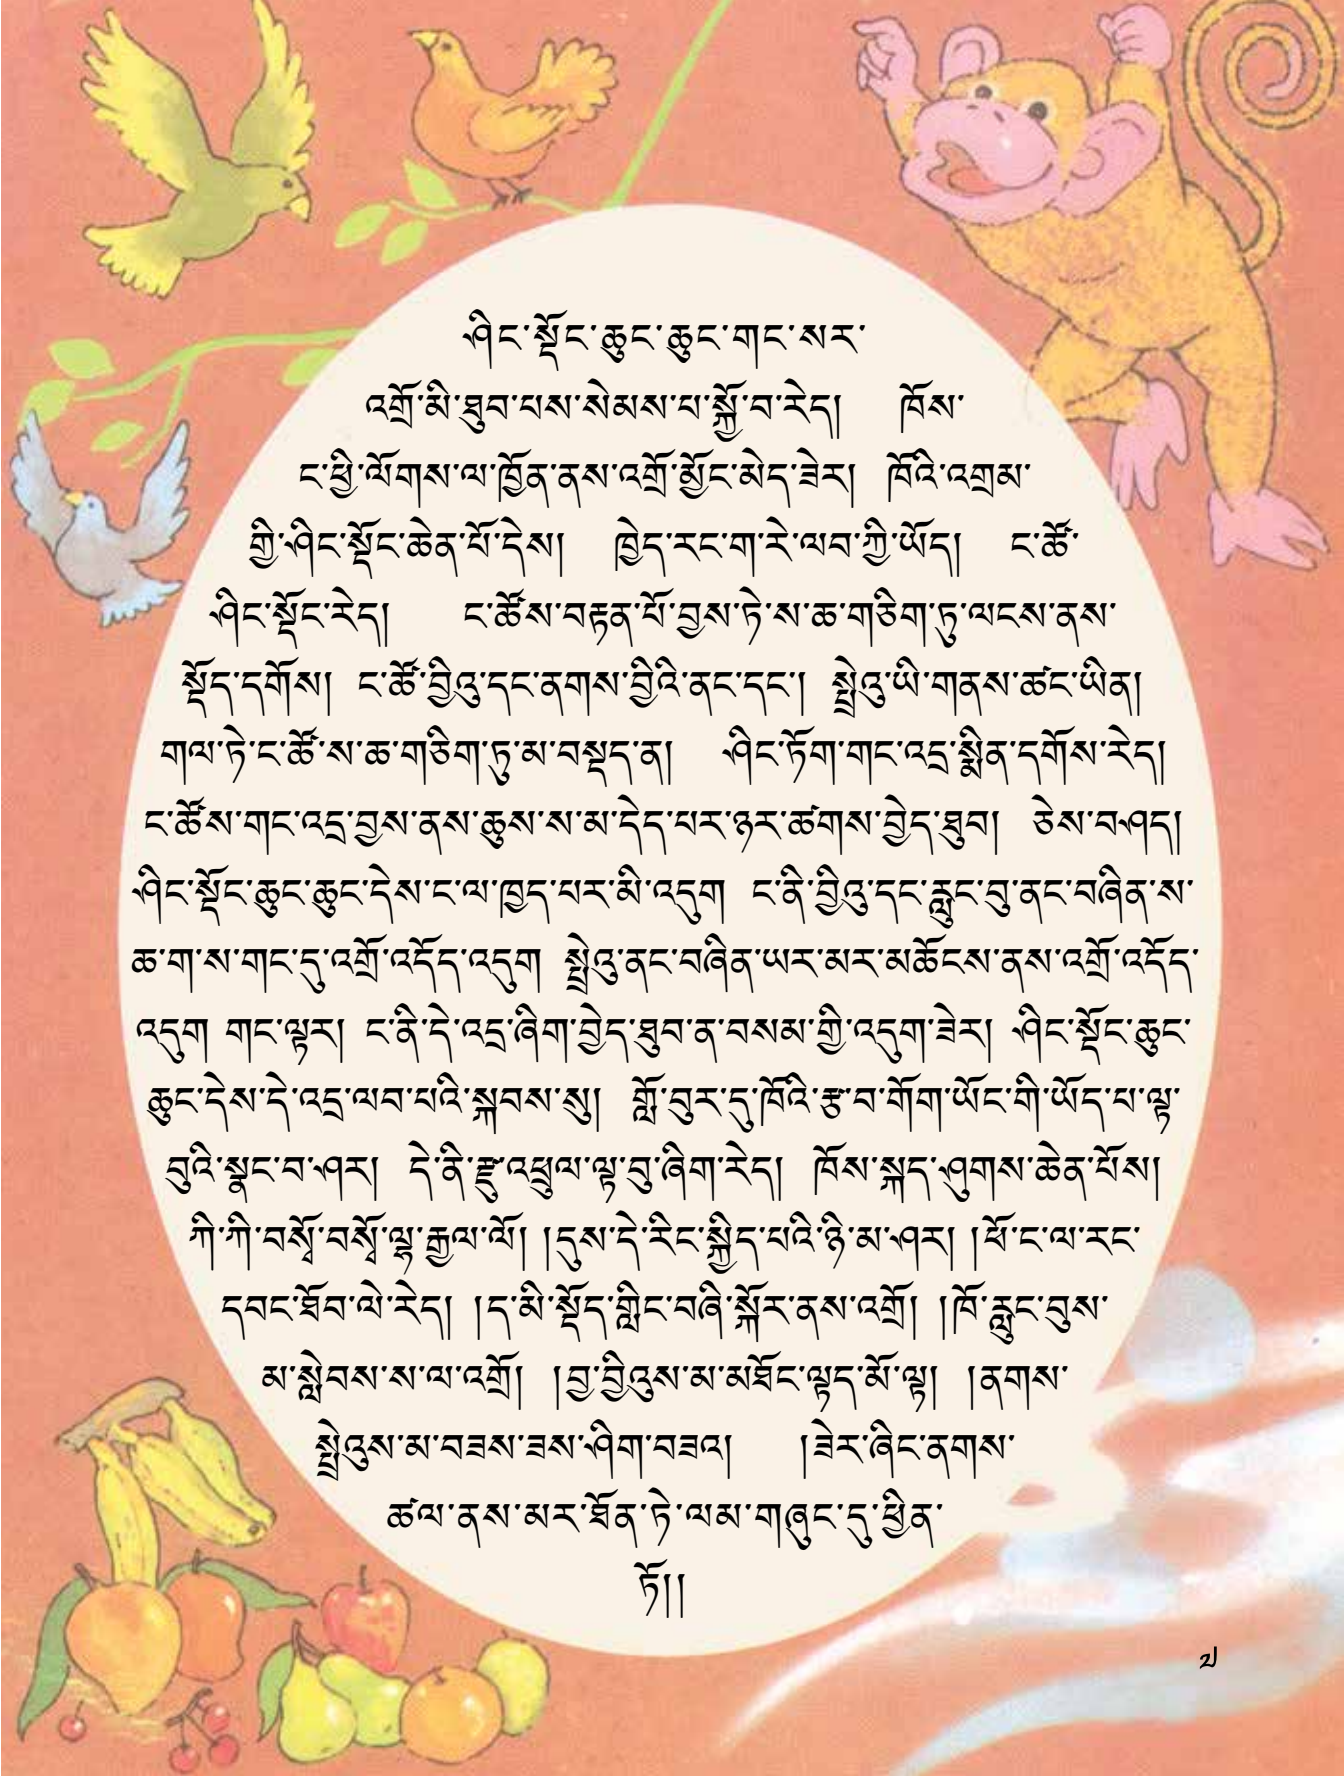 ཤིང་སྡོང་ཆུང་ཆུང་གང་སར་
འགྲོ་མི་ཐུབ་པས་སེམས་པ་སྐྱོ་བ་རེད། ཁོས་
ང་ཕྱི་ལོགས་ལ་ཁྱོན་ནས་འགྲོ་མྱོང་མེད་ཟེར། ཁོའི་འགྲམ་
གྱི་ཤིང་སྡོང་ཆེན་པོ་དེས། ཁྱེད་རང་ག་རེ་ལབ་ཀྱི་ཡོད། ང་ཚོ་
ཤིང་སྡོང་རེད། ང་ཚོས་བརྟན་པོ་བྱས་ཏེ་ས་ཆ་གཅིག་ཏུ་ལངས་ནས་
སྡོད་དགོས། ང་ཚོ་བྱིའུ་དང་ནགས་བྱིའི་ནང་དང་། སྤྲེའུ་ཡི་གནས་ཚང་ཡིན།
གལ་ཏེ་ང་ཚོ་ས་ཆ་གཅིག་ཏུ་མ་བསྡད་ན། ཤིང་ཏོག་གང་འདྲ་སྨིན་དགོས་རེད།
ང་ཚོས་གང་འདྲ་བྱས་ནས་ཆུས་ས་མ་དེད་པར་ཉར་ཚགས་བྱེད་ཐུབ། ཅེས་བཤད།
ཤིང་སྡོང་ཆུང་ཆུང་དེས་ང་ལ་ཁྱད་པར་མི་འདུག ང་ནི་བྱིའུ་དང་རླུང་བུ་ནང་བཞིན་ས་
ཆ་ག་ས་གང་དུ་འགྲོ་འདོད་འདུག སྤྲེའུ་ནང་བཞིན་ཡར་མར་མཆོངས་ནས་འགྲོ་འདོད་
འདུག གང་ལྟར། ང་ནི་དེ་འདྲ་ཞིག་བྱེད་ཐུབ་ན་བསམ་གྱི་འདུག་ཟེར། ཤིང་སྡོང་ཆུང་
ཆུང་དེས་དེ་འདྲ་ལབ་པའི་སྐབས་སུ། གློ་བུར་དུ་ཁོའི་རྩ་བ་གོག་ཡོང་གི་ཡོད་པ་ལྟ་
བུའི་སྣང་བ་ཤར། དེ་ནི་རྫུ་འཕྲུལ་ལྟ་བུ་ཞིག་རེད། ཁོས་སྐད་ཤུགས་ཆེན་པོས།
ཀི་ཀི་བསྭོ་བསྭོ་ལྷ་རྒྱལ་ལོ། །དུས་དེ་རིང་སྐྱིད་པའི་ཉི་མ་ཤར། །ཕོ་ང་ལ་རང་
དབང་ཐོབ་ལེ་རེད། །ད་མི་སྡོད་གླིང་བཞི་སྐོར་ནས་འགྲོ། །ཁོ་རླུང་བུས་
མ་སླེབས་ས་ལ་འགྲོ། །བྱ་བྱིའུས་མ་མཐོང་ལྟད་མོ་ལྟ། །ནགས་
སྤྲེའུས་མ་བཟས་ཟས་ཤིག་བཟའ། །ཟེར་ཞིང་ནགས་
ཚལ་ནས་མར་ཐོན་ཏེ་ལམ་གཞུང་དུ་ཕྱིན་
ཏོ།།